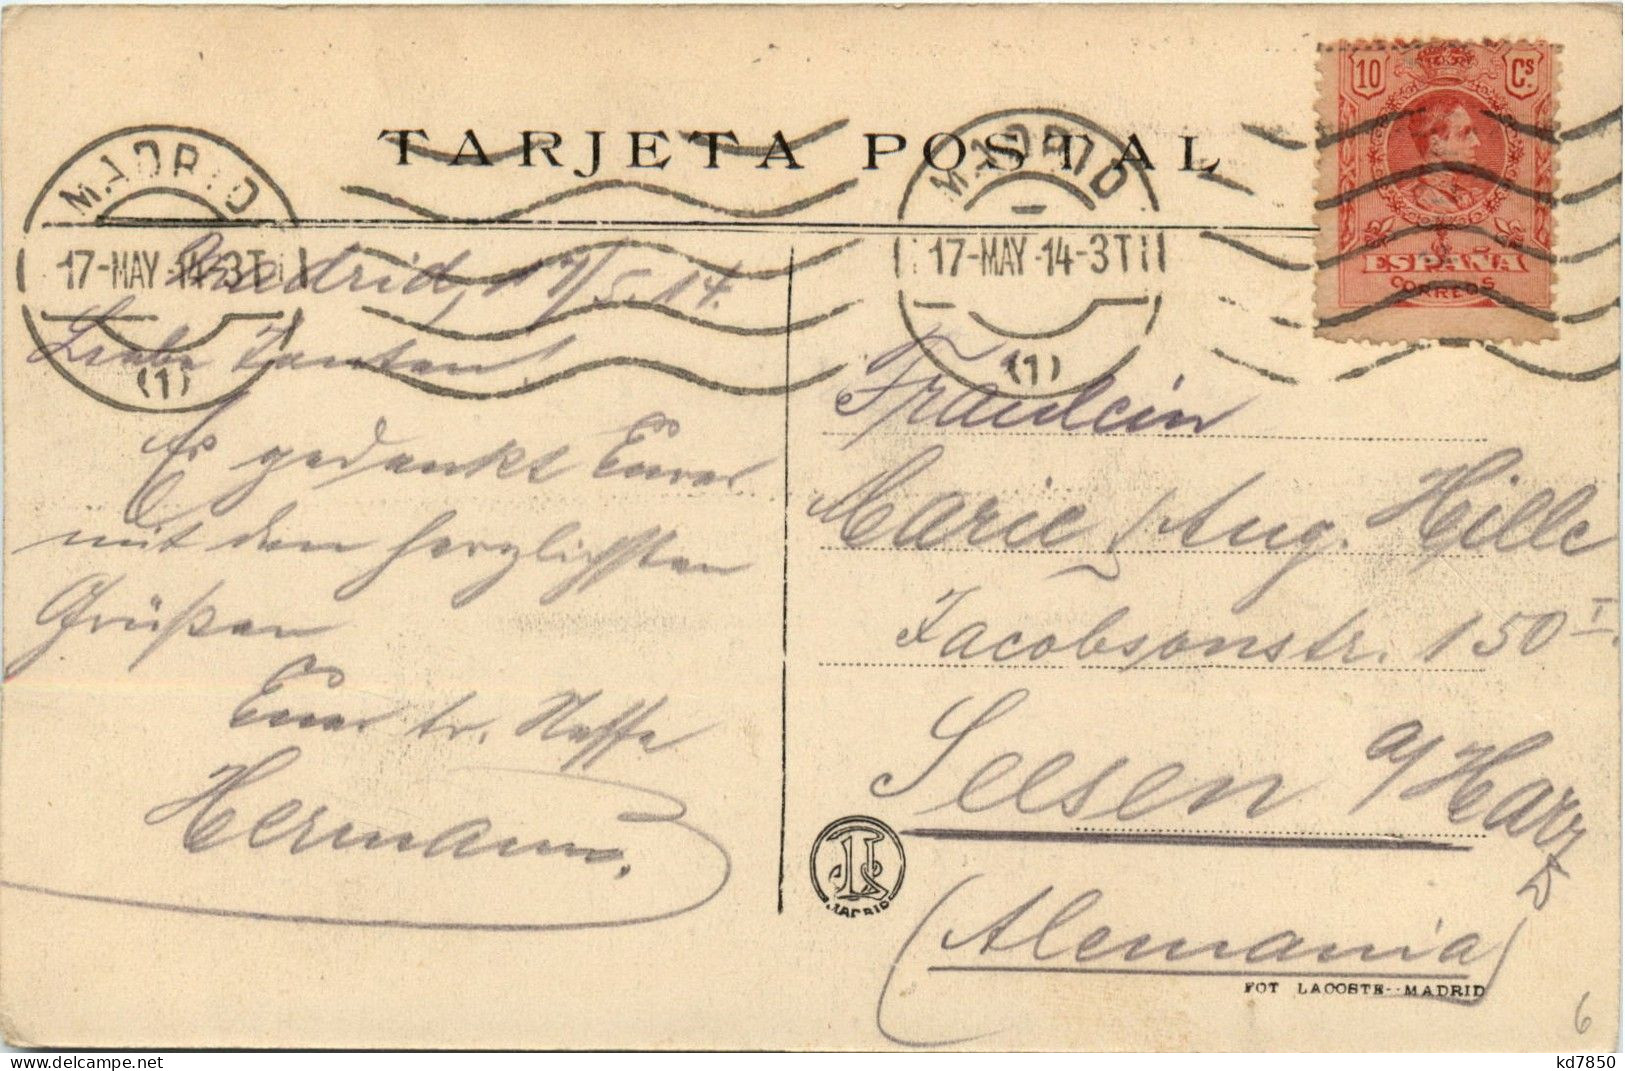 TARJETA POSTAL
MADRID
17-MAY-14-3T
(1)
MADRID
17-MAY-14-3T
(1)
10 Cs.
ESPAÑA
CORREOS
Madrid, 17/5.14.
Liebe Tanten!
Es gedenkt Eurer
mit den herzlichsten
Grüßen
Euer tr. Neffe
Hermann.
Fräulein
Marie / Aug. Hille
Jacobsonstr. 150 I.
Seesen a/Harz
(Alemania)
MADRID
FOT LACOSTE--MADRID
6
kd7850